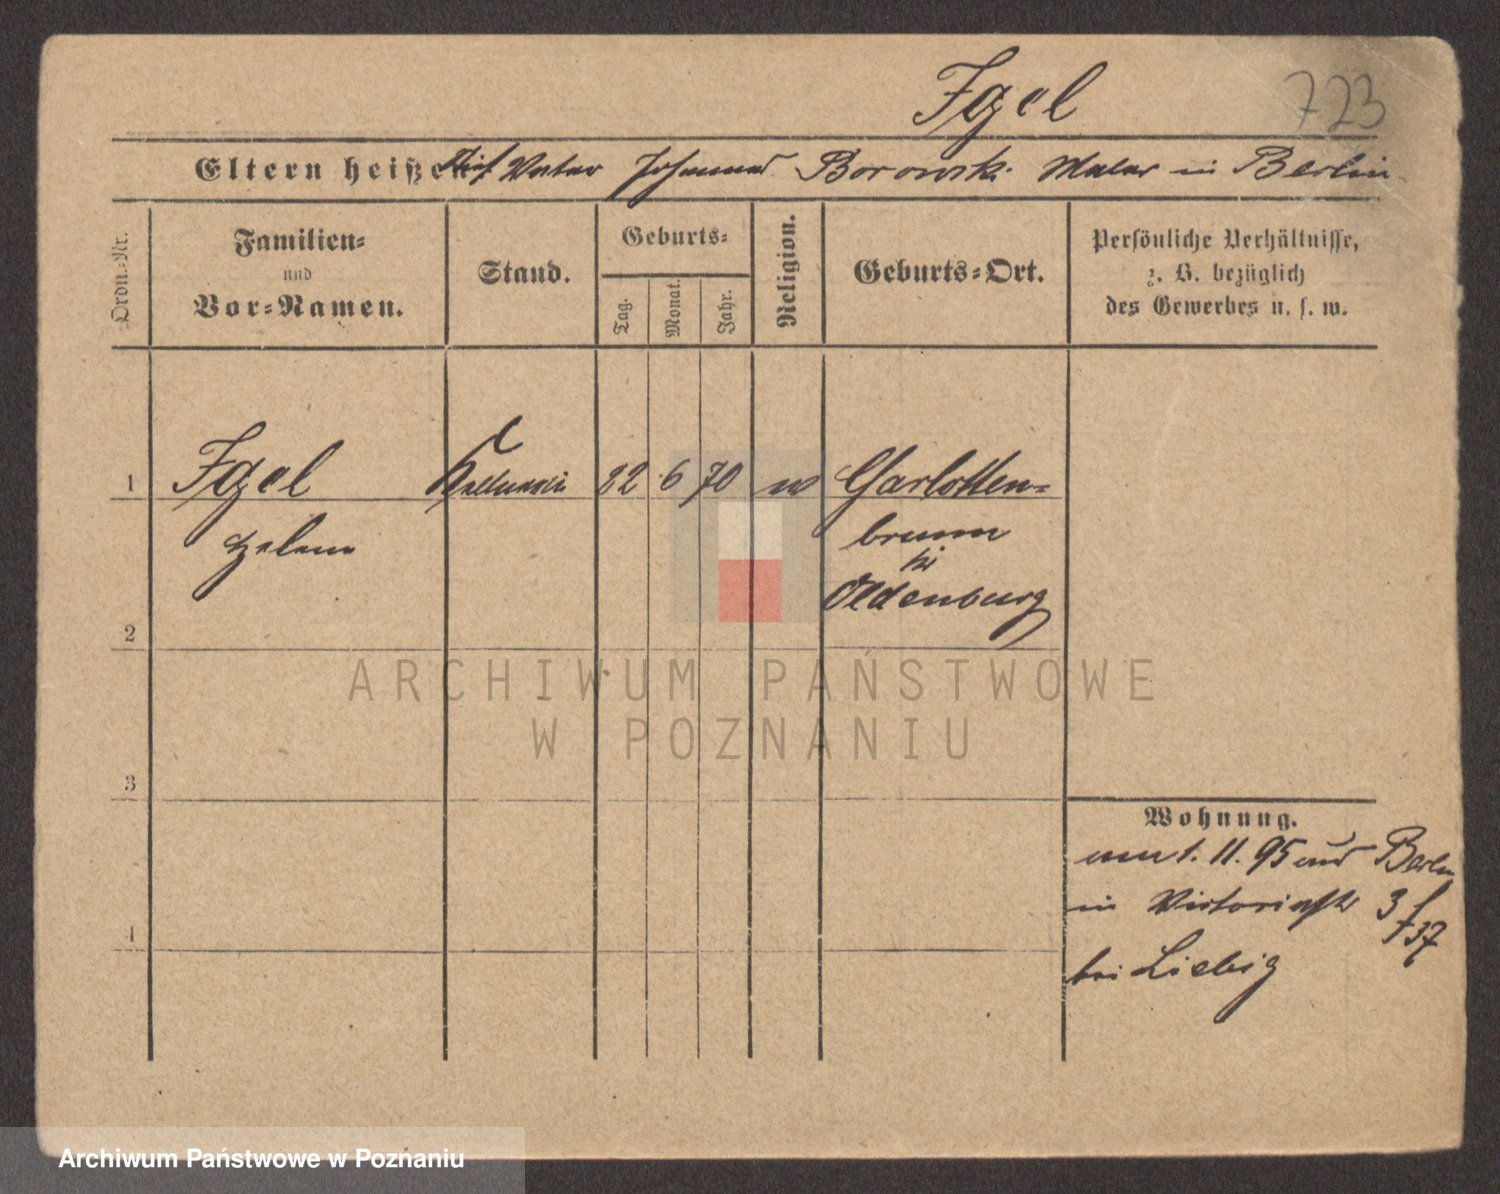 Igel
723
Eltern heißen Vater Johannes Borowski Maler in Berlin
Ordn.=Nr.
Familien=
und
Vor=Namen.
Stand.
Geburts=
Tag.
Monat.
Jahr.
Religion.
Geburts=Ort.
Persönliche Verhältnisse,
z. B. bezüglich
des Gewerbes u. s. w.
1
Igel
Kellnerin
22
6
70
Charlotten=
Helene
brunn
Oldenburg
2
3
Wohnung.
1. 11. 95 aus Berlin
in Victoriastr 37
4
bei Liebig
ARCHIWUM PAŃSTWOWE
W POZNANIU
Archiwum Państwowe w Poznaniu